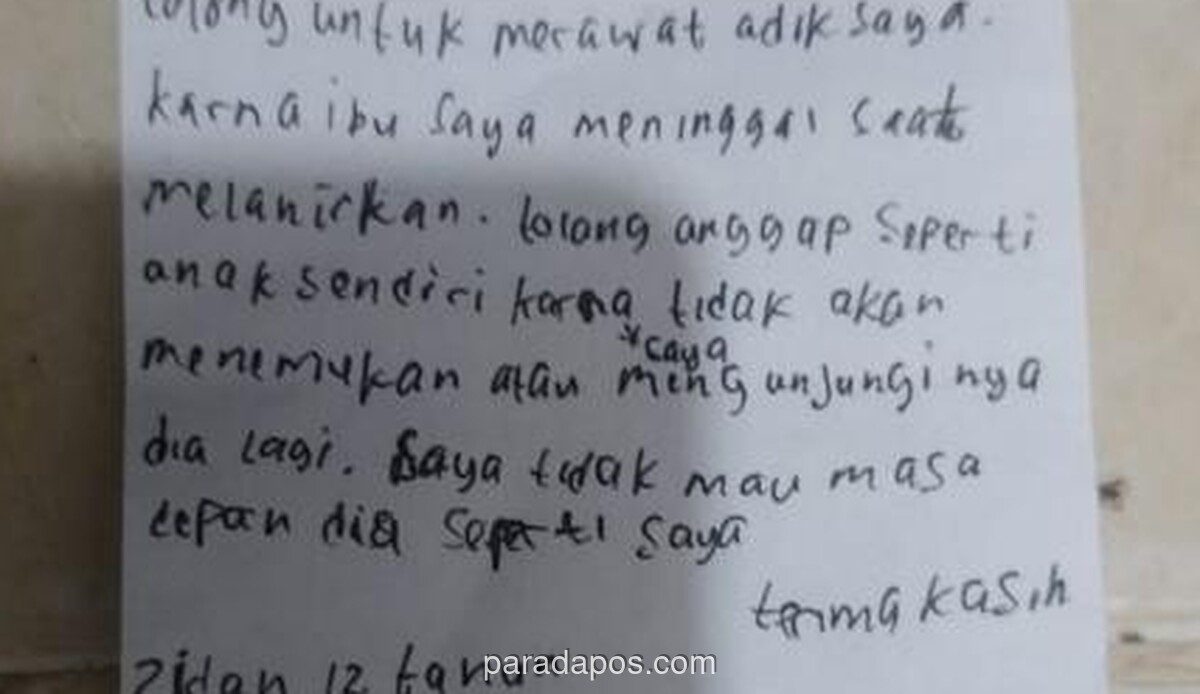 tolong untuk merawat adik saya.
karna ibu saya meninggal saat
melahirkan. tolong anggap seperti
anak sendiri karna tidak akan
*saya
menemukan atau mengunjungi nya
dia lagi. saya tidak mau masa
depan dia seperti saya
terima kasih
zidan 12 tahun
paradapos.com